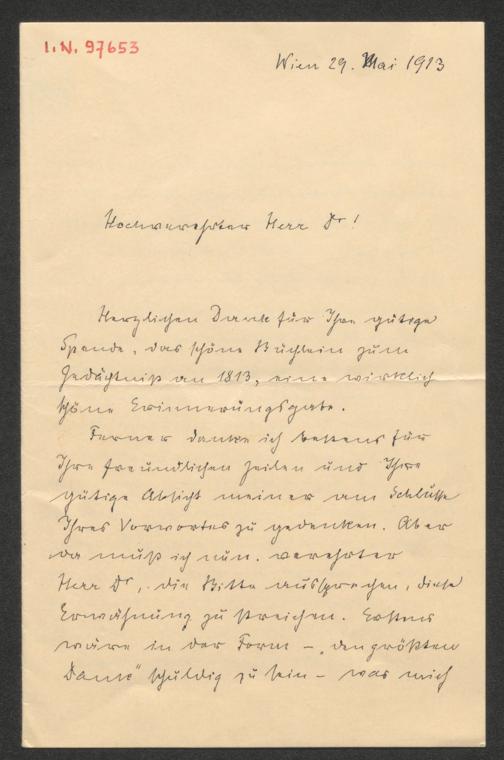 I.N. 97653
Wien 29. Mai 1913
Hochverehrter Herr Dr!
Herzlichen Dank für Ihre gütige
Spende, das schöne Büchlein zum
Gedächtniß an 1813, eine wirklich
schöne Erinnerungsgabe.
Ferner danke ich bestens für
Ihre freundlichen Zeilen und Ihre
gütige Absicht meiner am Schlusse
Ihres Vorwortes zu gedenken. Aber
da muß ich nun, verehrter
Herr Dr, die Bitte aussprechen, diese
Erwähnung zu streichen. Erstens
wäre in der Form – „den größten
Dank" schuldig zu sein – was mich